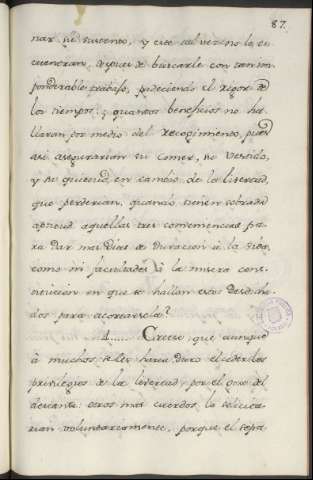 87.
nar su sustento, y este tal vez no lo en
cuentran, despues de buscarle con tan im
ponderable trabajo, padeciendo el rigor de
los tiempos: ¿quantos beneficios no ha
llaran por medio del recogimiento, pues
asi aseguraràn su comer, su vestido,
y su quietud, en cambio de la livertad,
que perderian, quando tienen sobrada
aptitud aquellas tres comveniencias pa
ra dar mas dias de duracion à la vida,
como mi facultades à la misera cons
titucion en que se hallan estos desdicha
dos para acortarsela?
Creese, que aunque
à muchos se les haria duro el ceder los
privilegios de la livertad, por el goze del
descanso: otros mas cuerdos, la
rian voluntariamente, porque el sepa